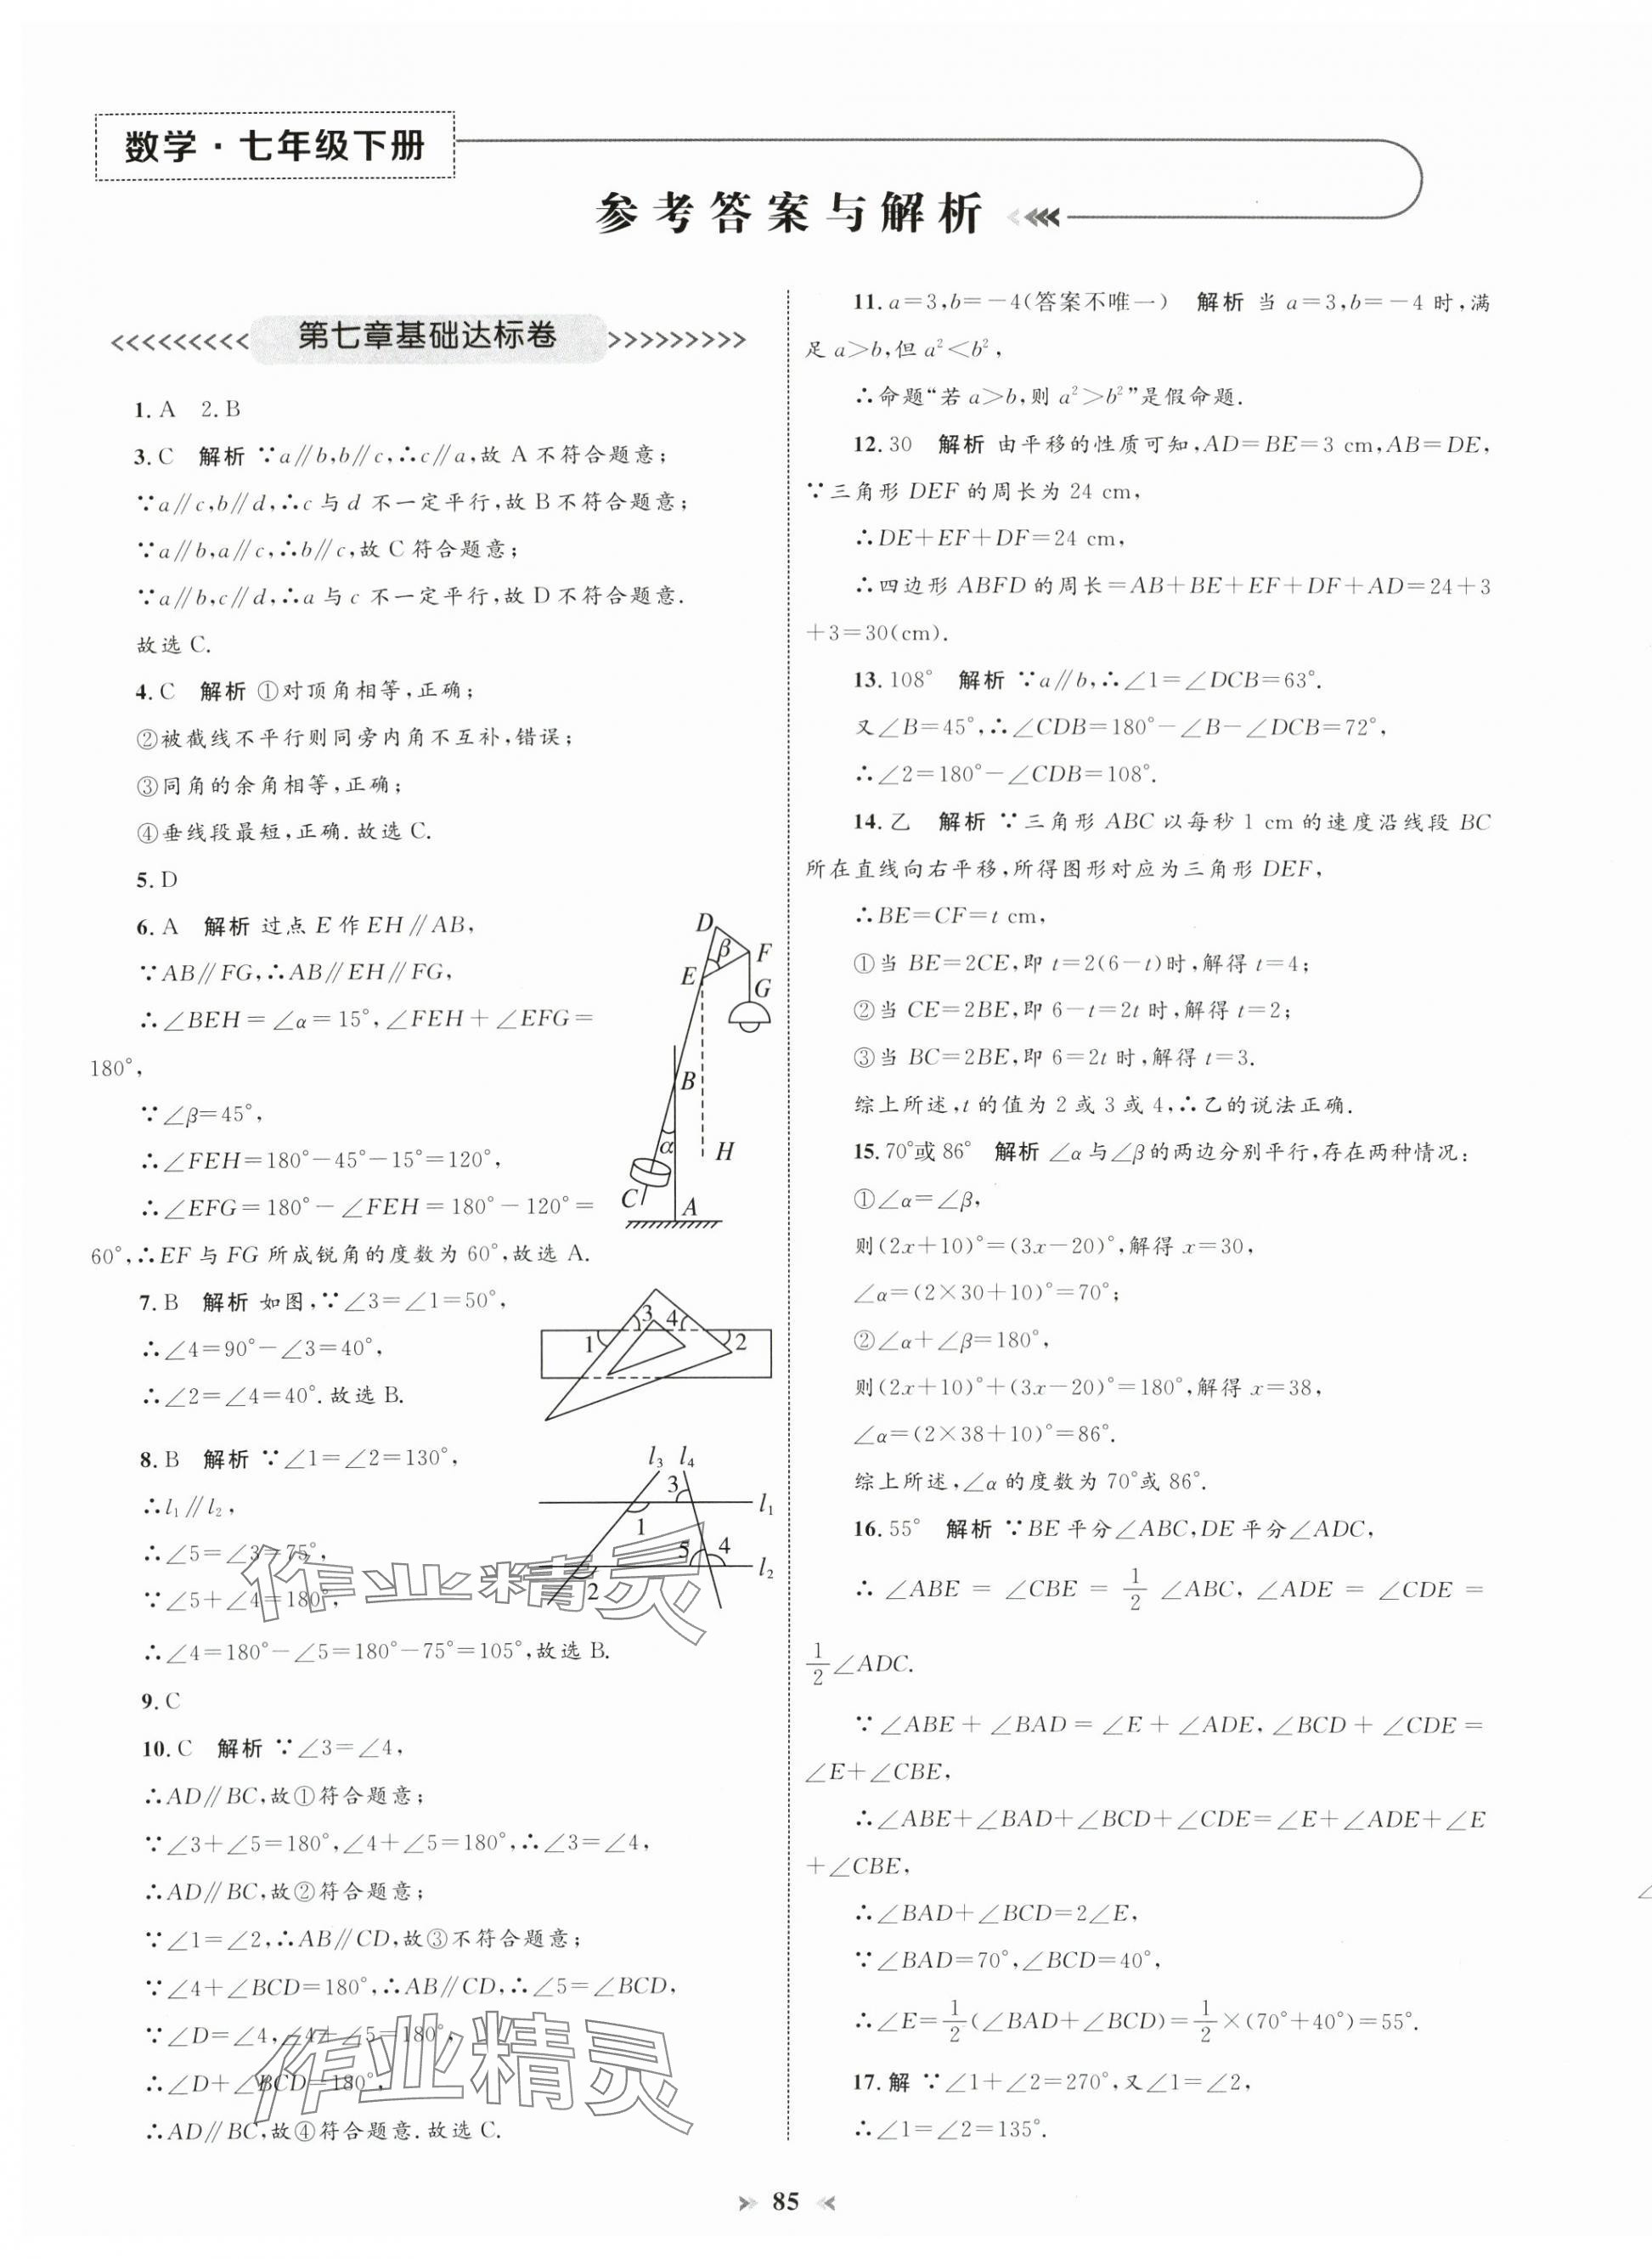 数学·七年级下册
参考答案与解析
第七章基础达标卷
1.A 2.B
3.C 解析 ∵a∥b,b∥c,∴c∥a,故 A 不符合题意;
∵a∥c,b∥d,∴c 与 d 不一定平行,故 B 不符合题意;
∵a∥b,a∥c,∴b∥c,故 C 符合题意;
∵a∥b,c∥d,∴a 与 c 不一定平行,故 D 不符合题意.
故选 C.
4.C 解析 ①对顶角相等,正确;
②被截线不平行则同旁内角不互补,错误;
③同角的余角相等,正确;
④垂线段最短,正确.故选 C.
5.D
6.A 解析 过点 E 作 EH∥AB,
∵AB∥FG,∴AB∥EH∥FG,
∴∠BEH=∠α=15°,∠FEH+∠EFG=
180°,
∵∠β=45°,
∴∠FEH=180°-45°-15°=120°,
∴∠EFG=180°-∠FEH=180°-120°=
60°,∴EF 与 FG 所成锐角的度数为 60°,故选 A.
D
β
F
E
G
B
α
H
C
A
7.B 解析 如图,∵∠3=∠1=50°,
∴∠4=90°-∠3=40°,
∴∠2=∠4=40°.故选 B.
3 4
1 2
8.B 解析 ∵∠1=∠2=130°,
∴l₁∥l₂,
∴∠5=∠3=75°,
∵∠5+∠4=180°,
∴∠4=180°-∠5=180°-75°=105°,故选 B.
l₃ l₄
3
l₁
1
5 4
l₂
2
9.C
10.C 解析 ∵∠3=∠4,
∴AD∥BC,故①符合题意;
∵∠3+∠5=180°,∠4+∠5=180°,∴∠3=∠4,
∴AD∥BC,故②符合题意;
∵∠1=∠2,∴AB∥CD,故③不符合题意;
∵∠4+∠BCD=180°,∴AB∥CD,∴∠5=∠BCD,
∵∠D=∠4,∠4+∠5=180°,
∴∠D+∠BCD=180°,
∴AD∥BC,故④符合题意.故选 C.
11.a=3,b=-4(答案不唯一) 解析 当 a=3,b=-4 时,满
足 a>b,但 a²<b²,
∴命题“若 a>b,则 a²>b²”是假命题.
12.30 解析 由平移的性质可知,AD=BE=3 cm,AB=DE,
∵三角形 DEF 的周长为 24 cm,
∴DE+EF+DF=24 cm,
∴四边形 ABFD 的周长=AB+BE+EF+DF+AD=24+3
+3=30(cm).
13.108° 解析 ∵a∥b,∴∠1=∠DCB=63°.
又∠B=45°,∴∠CDB=180°-∠B-∠DCB=72°,
∴∠2=180°-∠CDB=108°.
14.乙 解析 ∵三角形 ABC 以每秒 1 cm 的速度沿线段 BC
所在直线向右平移,所得图形对应为三角形 DEF,
∴BE=CF=t cm,
①当 BE=2CE,即 t=2(6-t)时,解得 t=4;
②当 CE=2BE,即 6-t=2t 时,解得 t=2;
③当 BC=2BE,即 6=2t 时,解得 t=3.
综上所述,t 的值为 2 或 3 或 4,∴乙的说法正确.
15.70°或 86° 解析 ∠α与∠β的两边分别平行,存在两种情况:
①∠α=∠β,
则(2x+10)°=(3x-20)°,解得 x=30,
∠α=(2×30+10)°=70°;
②∠α+∠β=180°,
则(2x+10)°+(3x-20)°=180°,解得 x=38,
∠α=(2×38+10)°=86°.
综上所述,∠α 的度数为 70°或 86°.
16.55° 解析 ∵BE 平分∠ABC,DE 平分∠ADC,
∴ ∠ABE = ∠CBE = 1/2 ∠ABC, ∠ADE = ∠CDE =
1/2∠ADC.
∵∠ABE+∠BAD=∠E+∠ADE,∠BCD+∠CDE=
∠E+∠CBE,
∴∠ABE+∠BAD+∠BCD+∠CDE=∠E+∠ADE+∠E
+∠CBE,
∴∠BAD+∠BCD=2∠E,
∵∠BAD=70°,∠BCD=40°,
∴∠E=1/2(∠BAD+∠BCD)=1/2×(70°+40°)=55°.
17.解 ∵∠1+∠2=270°,又∠1=∠2,
∴∠1=∠2=135°.
作业精灵
作业精灵
85